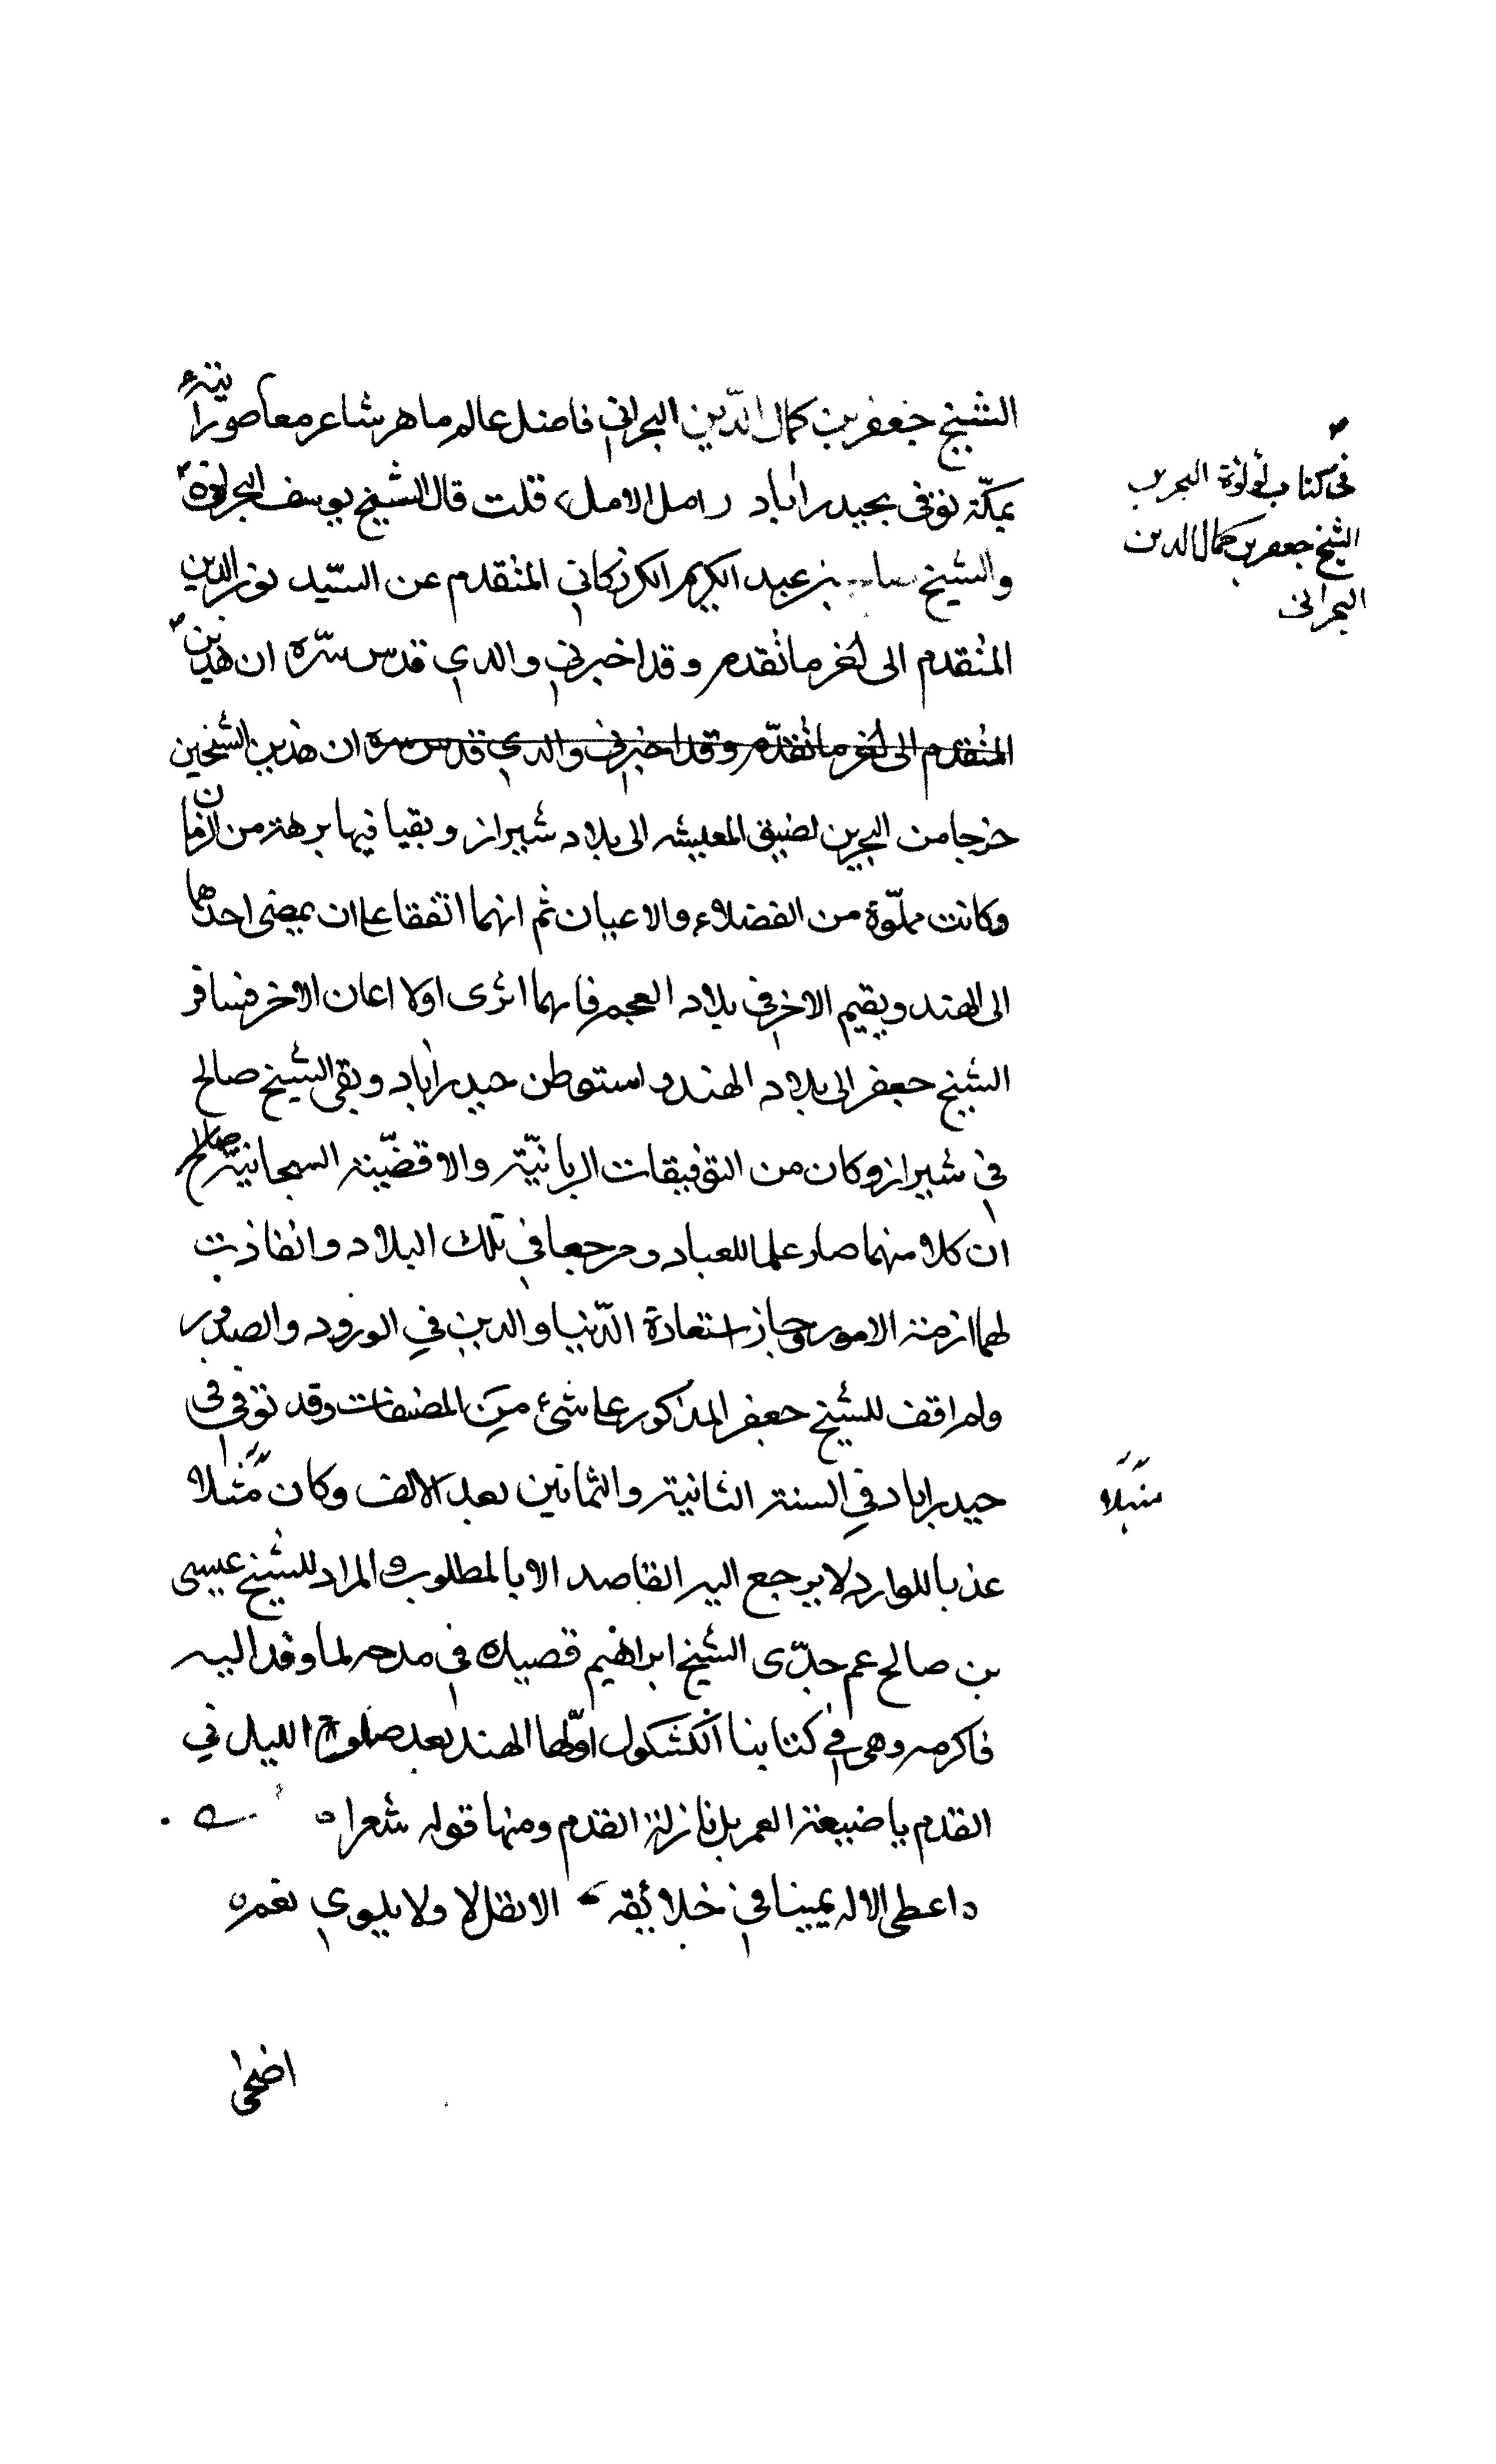 الشيخ جعفر بن كمال الدّين البحراني فاضل عالم ماهر شاعر معاصر رأيته
بمكّة توفى بحيدراباد (امل الامل) قلت قال الشيخ يوسف البحراني
في كتاب لؤلؤة البحرين
الشيخ جعفر بن كمال الدين
البحراني
والشيخ صالح بن عبد الكريم الكرزكاني المتقدم عن السّيد نور الدين
المتقدم الى اخر ما تقدم وقد اخبرني والدي قدس سّره ان هذين
المتقدم الى اخر ما تقدّم وقد اخبرني والدي قدس سره ان هذين الشيخين
خرجا من البحرين لضيق المعيشه الى بلاد شيراز وبقيا فيها برهة من الزمان
وكانت مملّوة من الفضلاء والاعيان ثم انهما اتفقا على ان يمضى احدهما
الى الهند ويقيم الاخر في بلاد العجم فايهما اثرى اولا اعان الاخر فسافر
الشيخ جعفر الى بلاد الهند واستوطن حيدراباد وبقى الشيخ صالح
في شيراز وكان من التوفيقات الربانيّة والاقضّية السبحانية
ان كلا منهما صار علما للعباد ومرجعا في تلك البلاد وانقادت
لهما ازمة الامور وحاز استعادة الدّنيا والدين في الورود والصدور
ولم اقف للشيخ جعفر المذكور على شئ من المصنفات وقد توفي في
حيدراباد في السنة الثانية والثمانين بعد الالف وكان منهلا
منهلا
عذبا للوارد لا يرجع اليه القاصد الا بالمطلوب والمراد للشيخ عيسى
بن صالح عم جدّى الشيخ ابراهيم قصيدة في مدحه لما وفد اليه
فاكرمه وهى في كتابنا الكشكول اوّلها الهند بعد صلوة الليل في
القدم يا ضيعة العمر بل يا زلة القدم ومنها قوله شعرا
اعطى الاله يمينا في خلائقه الا تقل لا ولا يلوي نعم
اضحى